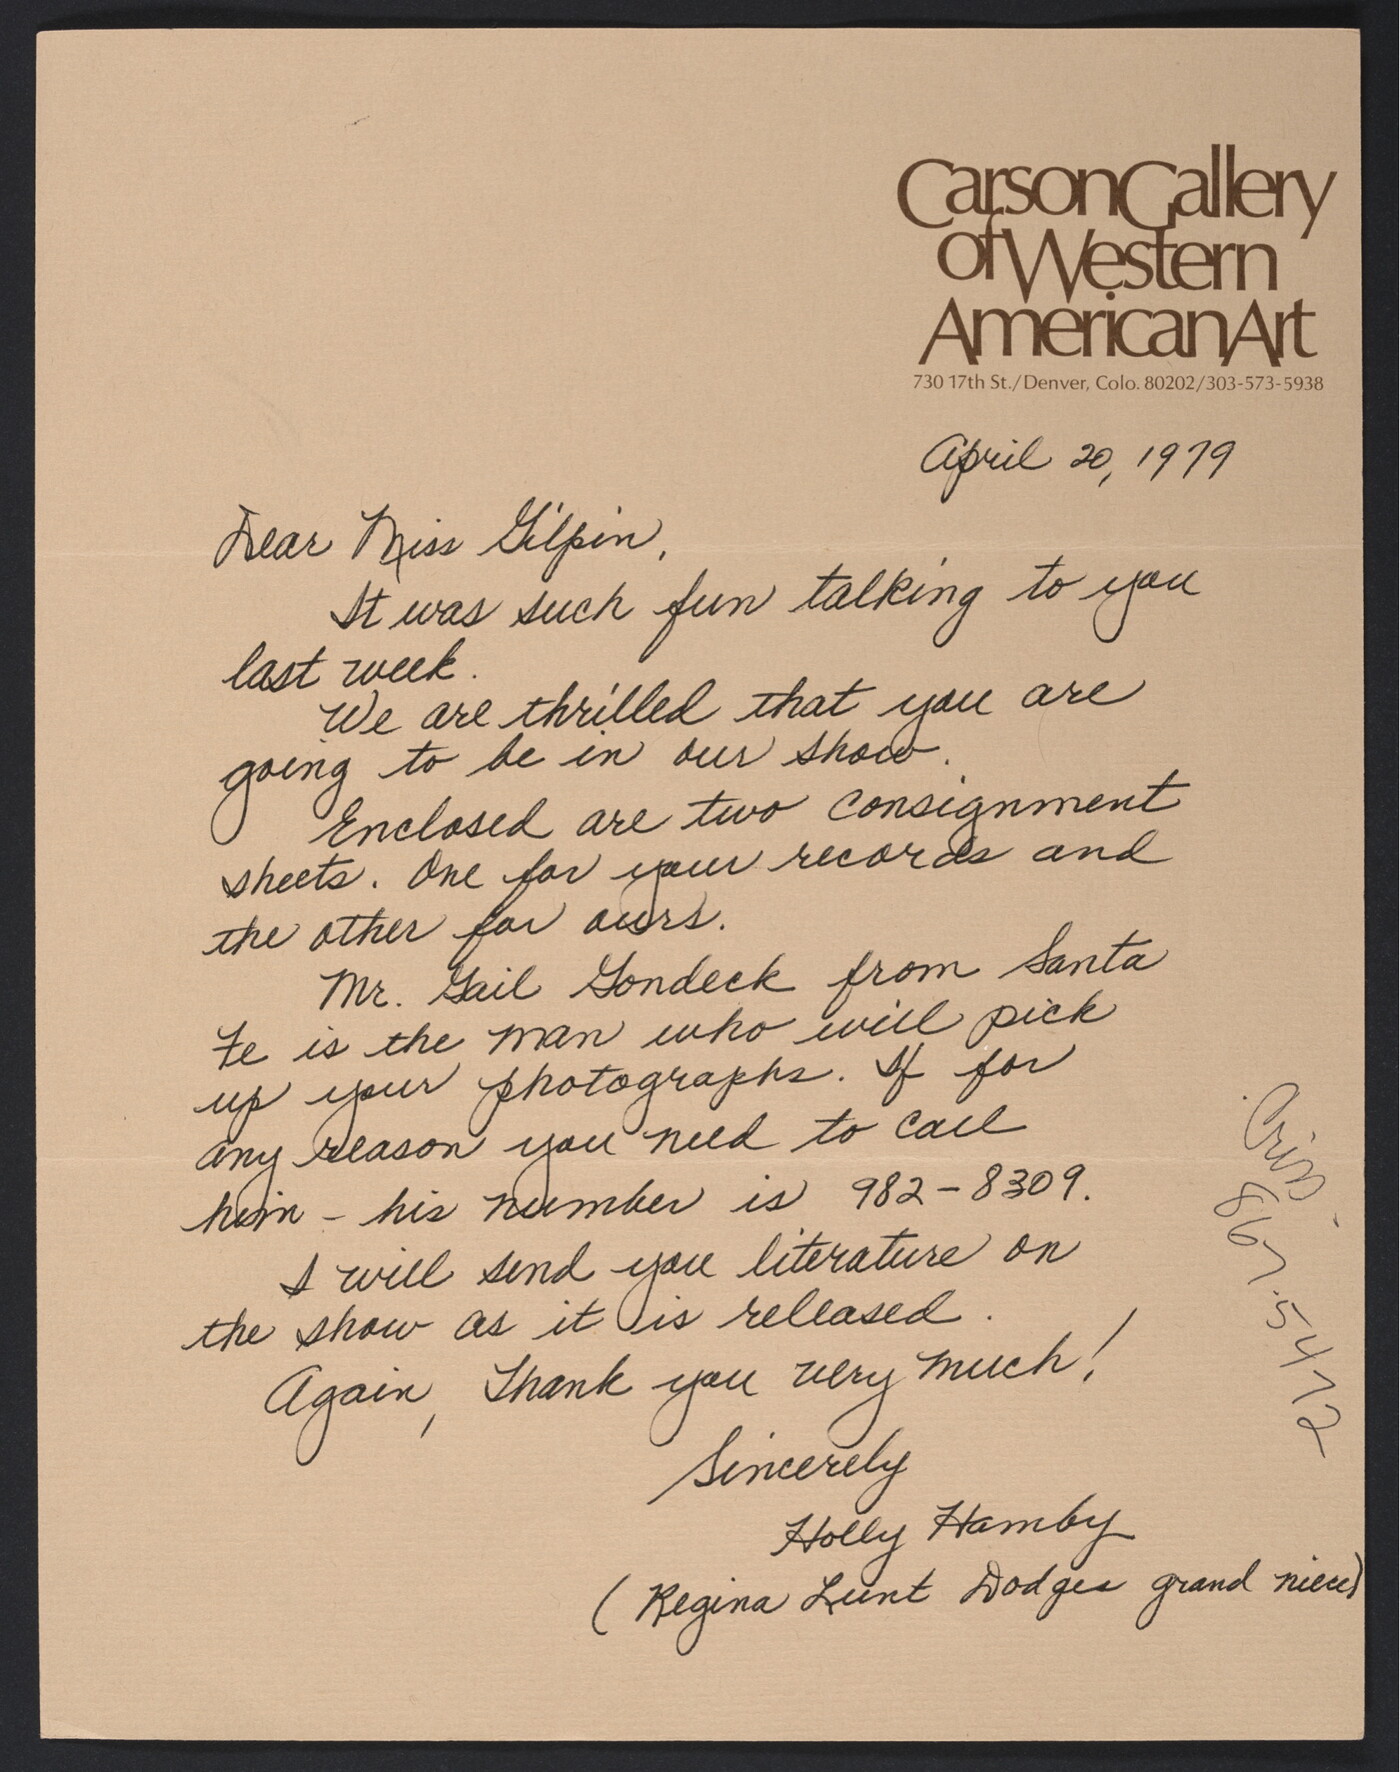 Carson Gallery
of Western
American Art
730 17th St./Denver, Colo. 80202/303-573-5938
April 20, 1979
Dear Miss Gilpin,
It was such fun talking to you
last week.
We are thrilled that you are
going to be in our show.
Enclosed are two consignment
sheets. One for your records and
the other for ours.
Mr. Gail Gondeck from Santa
Fe is the man who will pick
up your photographs. If for
any reason you need to call
him - his number is 982-8309.
I will send you literature on
the show as it is released.
Again, Thank you very much!
Sincerely
Holly Hamby
(Regina Lunt Dodges grand niece)